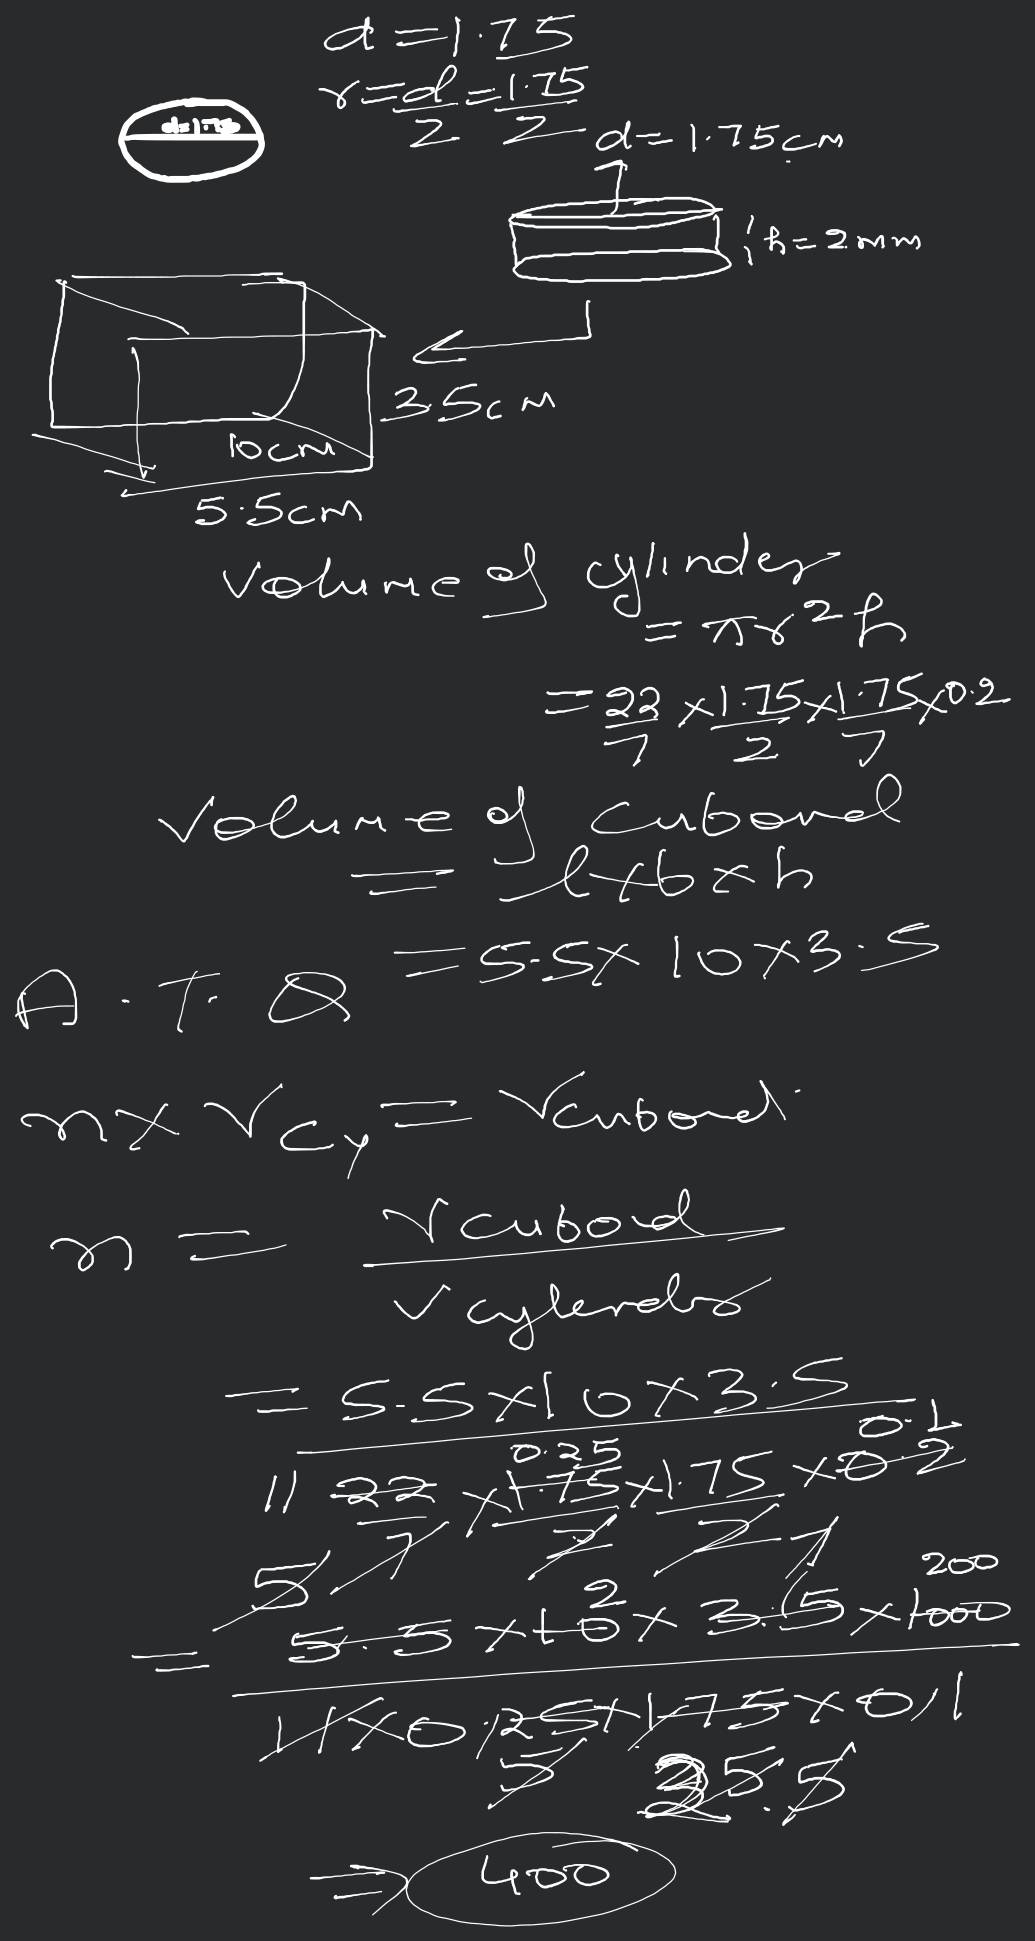 d=1.75
r=d/2=1.75/2
d=1.75
d=1.75cm
h=2mm
3.5cm
10cm
5.5cm
Volume of cylinder
=πr²h
=22/7×1.75/2×1.75/7×0.2
Volume of cuboid
=l×b×h
=5.5×10×3.5
A.T.Q
n×Vcy=Vcuboid
n=Vcuboid/Vcylinder
=5.5×10×3.5
0.25 0.1
11 22/7×1.75/2×1.75/2×0.2
5 2 200
=5.5×10×3.5×1000
11×0.25×1.75×0.1
5 35 5
⇒400